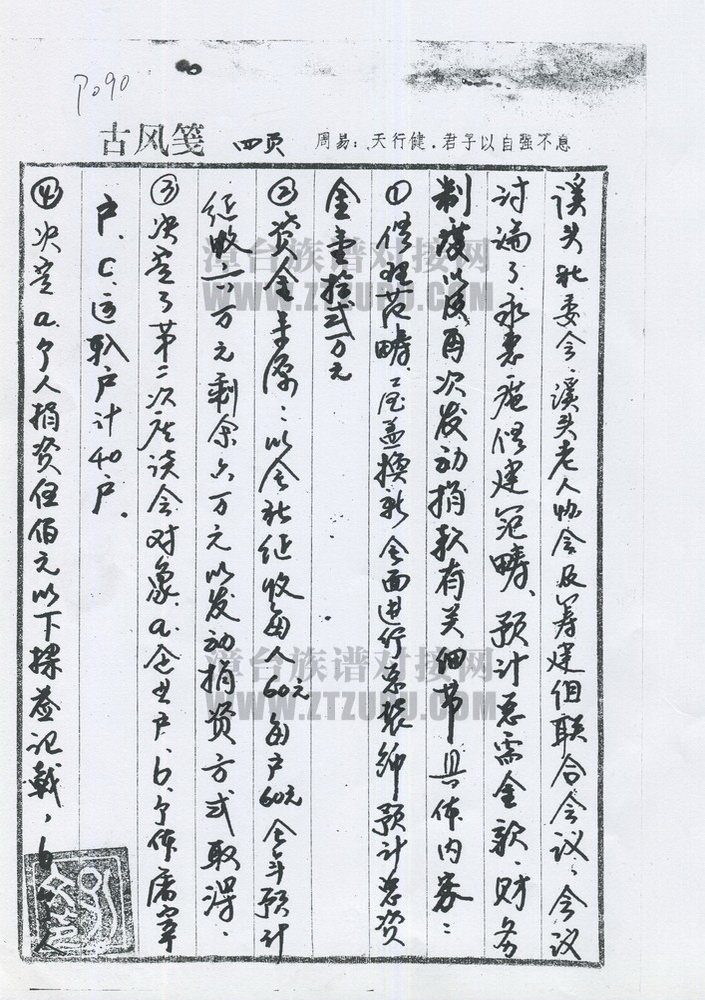 P090
古风笺 四页 周易：天行健．君子以自强不息
溪头社委会、溪头老人协会及筹建组联合会议、会议
讨论了永惠庵修建范畴、预计总需金款、财务
制度以及再次发动捐款有关细节具体内容：
①修理范畴、屋盖换新全面进行总装饰预计总资
金壹拾贰万元
②资金来源：以全社征收每人60元每户60元全年预计
征收六万元剩余六万元以发动捐资方式取得．
③决定了第二次座谈会对象、a.企业户、b.个体居家
户．C.运输户计40户．
④决定a.个人捐资伍佰元以下 记载，b个人
漳台族谱对接网
WWW.ZTZUPU.COM
漳台族谱对接网
WWW.ZTZUPU.COM